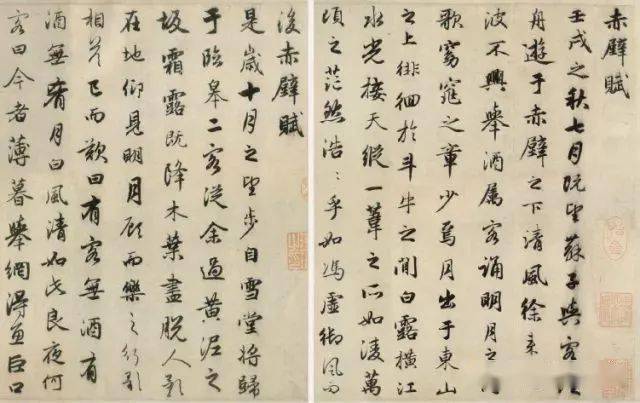 赤壁賦
壬戌之秋七月既望蘇子與客
舟遊于赤壁之下清風徐來
波不興舉酒屬客誦明月之
歌窈窕之章少焉月出于東山
之上徘徊於斗牛之間白露橫江
水光接天縱一葦之所如淩萬
頃之茫然浩〻乎如馮虛御風而
後赤壁賦
是歲十月之望步自雪堂將歸
于臨皋二客從余過黃泥之
坂霜露既降木葉盡脫人影
在地仰見明月顧而樂之行歌
相答已而歎曰有客無酒有
酒無肴月白風清如此良夜何
客曰今者薄暮舉網得魚巨口